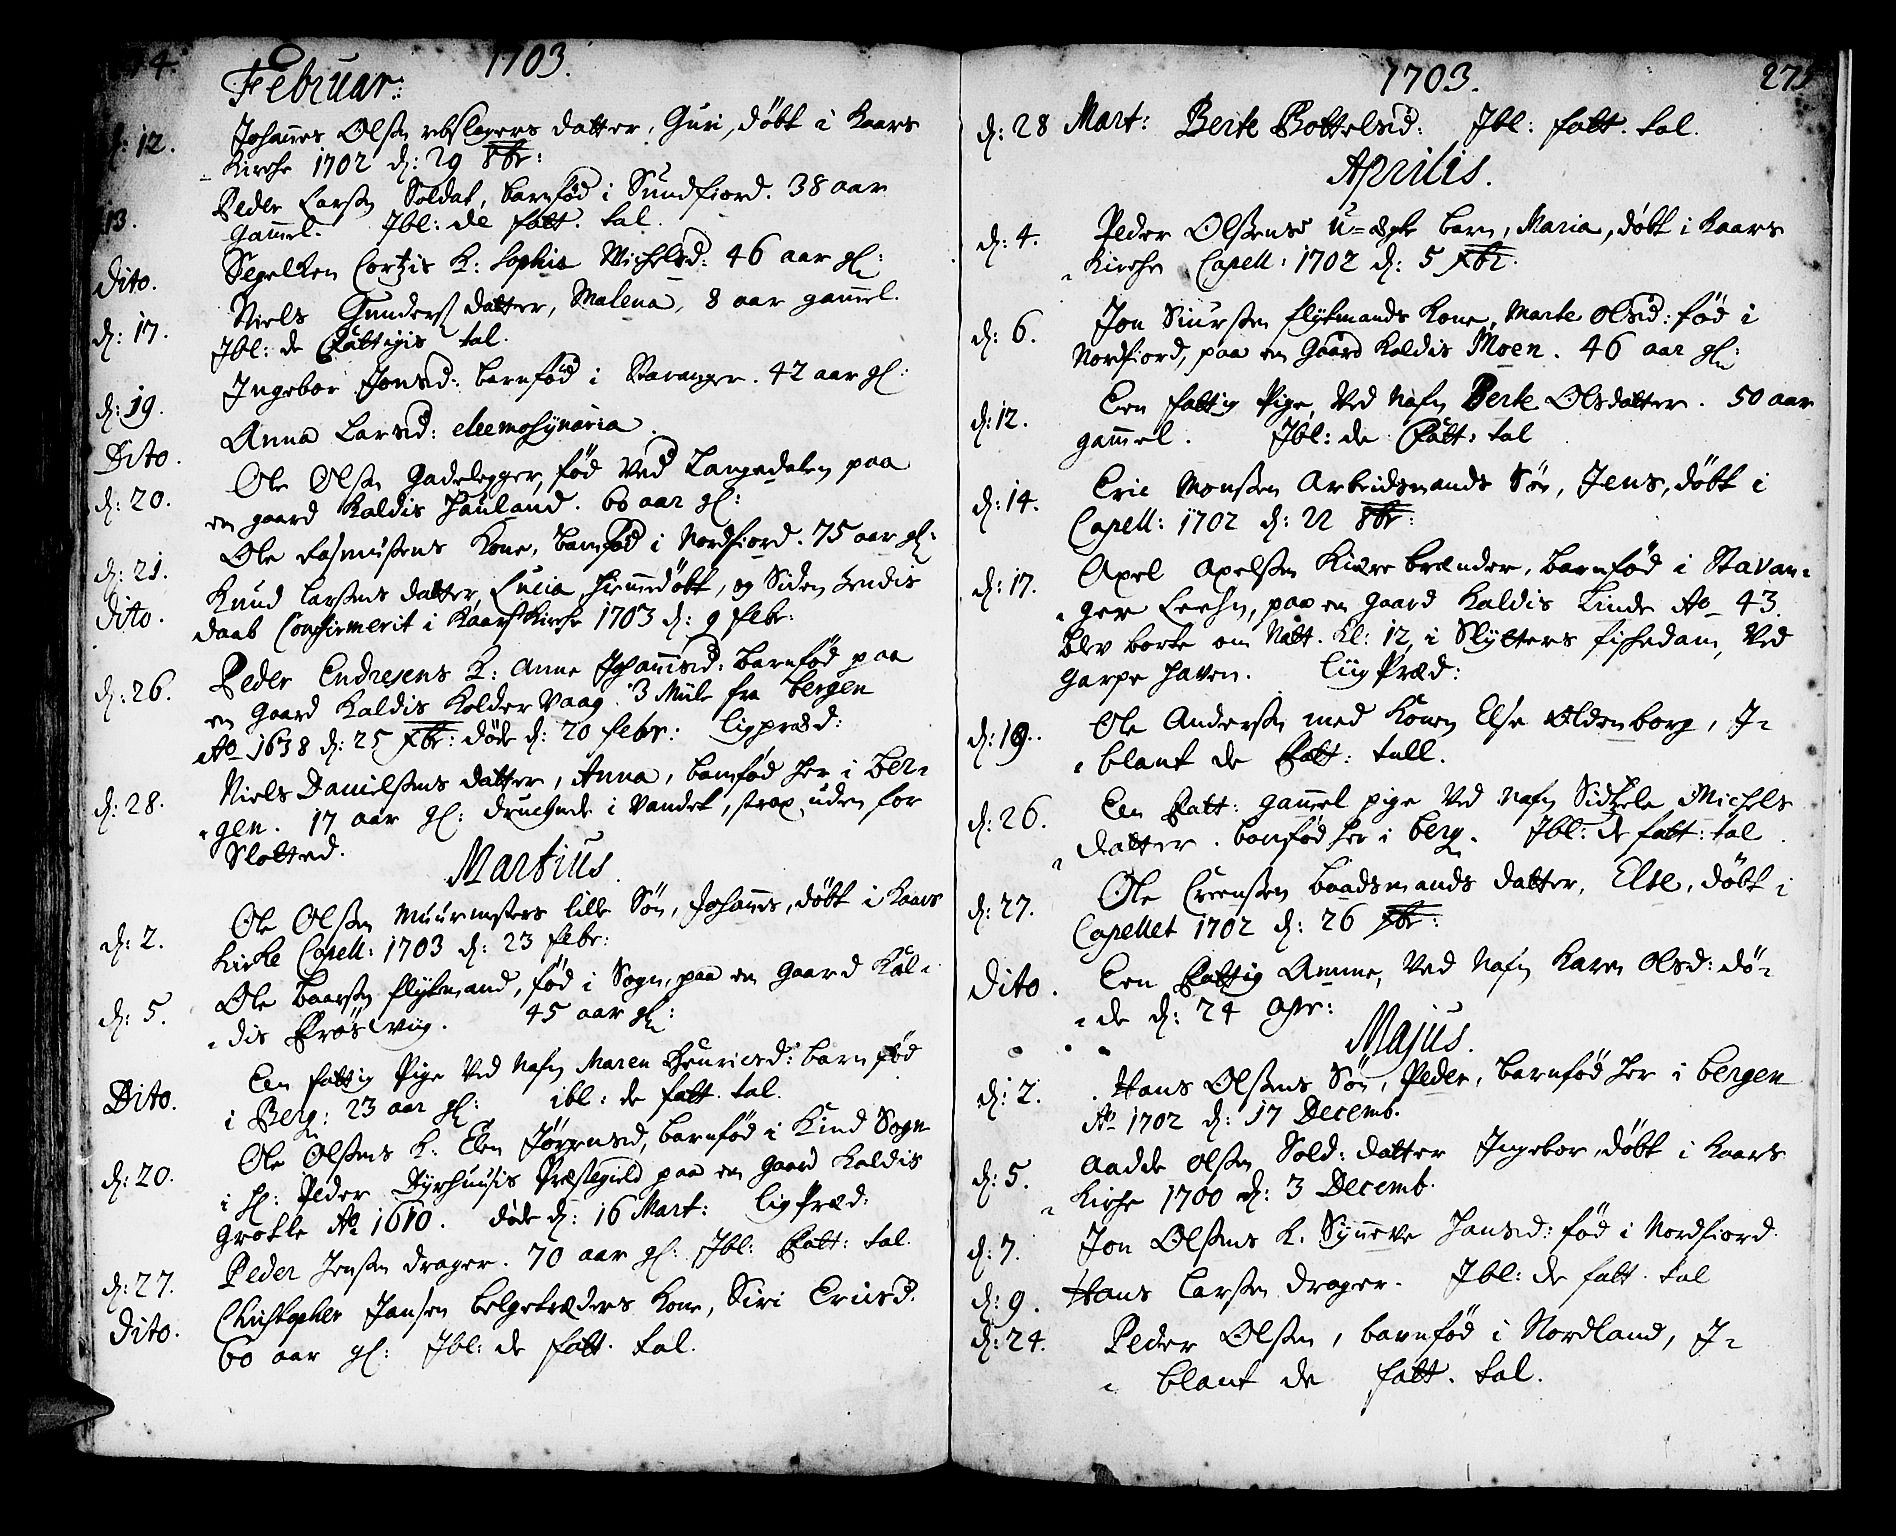 1703.
Februar:
d: 12. Johannes Olsen rebslagers datter, Guri, döbt i Kaars
Kirche 1702 d: 29 8br:
13. Peder Larsen Soldat, barnfød i Sundfiord. 38 aar
gammel. Jbl: de fatt. tal.
Dito. Segelken Cortzis K: Sophia Michelsd: 46 aar gl:
d: 17. Niels Gunders datter, Malena, 8 aar gammel.
Jbl: de Fattigis tal.
d: 19. Ingebor Jonsd: barnfød i Stavanger. 42 aar gl:
Dito. Anna Larsd: eleemosynaria.
d: 20. Ole Olsen Gadelegger, fød ved Langedalen paa
en gaard Kaldis Hauland. 60 aar gl:
d: 21. Ole Rasmusens Kone, barnfød i Nordfiord. 75 aar gl:
Dito. Knud Larsens datter, Lucia, hiemmedöbt, og Siden
daab Confirmerit i Kaars Kirche 1703 d: 9 febr:
d: 26. Peder Endresens K: Anne Johannisd: barnfød paa
en gaard Kaldis Kolder Vaag 3 Mile fra bergen
Ao 1638 d: 25 døde d: 20 febr: ligpræd:
d: 28. Niels Danielsens datter, Anna, barnfød her i ber-
gen. 17 aar gl: druchnede i Vandet, strax uden for
Slotted.
Martius.
d: 2. Ole Olsen Muurmesters lille Søn, Johannes, döbt i Kaars
Kirke Capell: 1703 d: 23 febr:
d: 5. Ole Baarsen flytmand, fød i Sogn, paa en Gaard Kal-
dis Frøsvig. 45 aar gl:
Dito. Een fattig Pige ved Nafn Maren Henricsd: barnfød
i Berg: 23 aar gl: ibl: de fatt. tal.
d: 20. Ole Olsens K. Elen Jörgensd, barnfød i Kind Sogn
i Hr: Peder Dyrhuusis Præstegield paa en Gaard Kaldis
Grotle Ao 1610. døde d: 16 Mart: lig Præd:
d: 27. Peder Jensen drager. 70 aar gl: Jbl: Fatt: tal.
Dito. Christopher Jansen belgetræders Kone, Siri Ericsd.
60 aar gl: Jbl: de fatt. tal.
1703. 275
d: 28 Mart: Berte Bottelsd: Jbl: fatt. tal.
Aprilis.
d: 4. Peder Olsens U=ægte barn, Maria, döbt i Kaars
Kirche Capell: 1702 d: 5
d: 6. Jon Siursen flytmands Kone, Marte Olsd: fød i
Nordfiord, paa en Gaard Kaldis Moen. 46 aar gl:
d: 12. Een fattig Pige, ved Nafn Berte Olsdatter. 50 aar
gammel. Jbl: de Fatt: tal
d: 14. Eric Monsen Arbeidsmands Søn, Jens, döbt i
Capell: 1702 d: 22 8br:
d: 17. Axel Axelsen Kiære brænder, barnfød i Stavan-
ger Leehn, paa en Gaard Kaldis Linde Ao 43.
blev borte om Natt. Kl: 12, i Slytters fiskedam, ved
Garpe haven. Liig Præd:
d: 19. Ole Andersen med Konen Else Oldenborg, I-
blant de Fatt: tall.
d: 26. Een Fatt: gammel pige ved Nafn Sidzele Michels
datter. barnfød her i berg. Jbl: de fatt: tal.
d: 27. Ole baadsmands datter, Else, döbt i
Capellet 1702 d: 26
Dito. Een Fattig Amme, ved Nafn Karen Olsd: dö-
de d: 24 Apr:
Majus.
d: 2. Hans Olsens Søn, Peder, barnfød her i bergen
Ao 1702 d: 17 Decemb.
d: 5. Aadde Olsen Sold: datter Ingebor, döbt i Kaars
Kirche 1700 d: 3 Decemb.
d: 7. Jon Olsens K. Synneve Hansd: fød i Nordfiord.
d: 9. Hans Larsen Drager. Jbl: de fatt. tal
d: 24. Peder Olsen, barnfød i Nordland, I-
blant de fatt. tal.